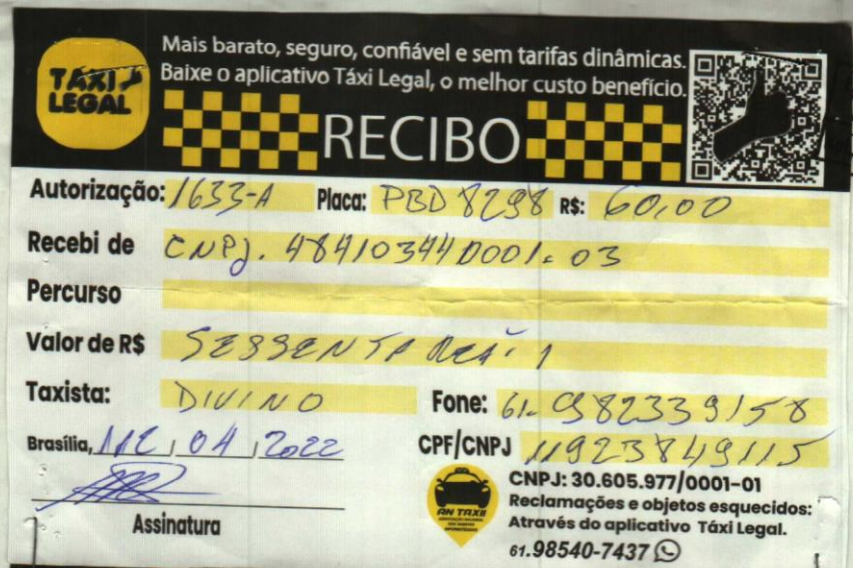 Mais barato, seguro, confiável e sem tarifas dinâmicas.
Baixe o aplicativo Táxi Legal, o melhor custo benefício.
TÁXI
LEGAL
RECIBO
Autorização: 1633-A Placa: PBD 8298 R$: 60,00
Recebi de CNPJ. 484103440001-03
Percurso
Valor de R$ SESSENTA REAIS
Taxista: DIVINO Fone: 61-982339158
Brasília, 04 2022 CPF/CNPJ 11923849115
Assinatura
AN TAXII
CNPJ: 30.605.977/0001-01
Reclamações e objetos esquecidos:
Através do aplicativo Táxi Legal.
61.98540-7437